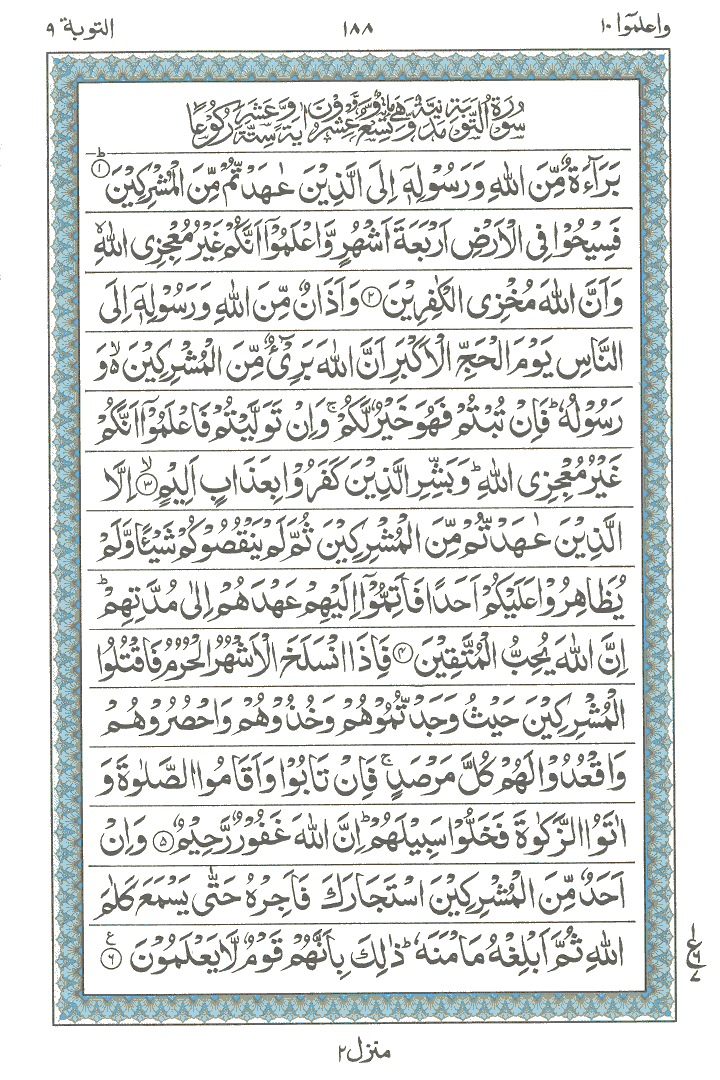 واعلموا ۱۰
۱۸۸
التوبة ۹
سورة التوبة مدنية وهي مائة وتسع وعشرون اية وستة عشر ركوعا
بَرَآءَةٌ مِّنَ اللهِ وَرَسُوْلِهٖۤ اِلَى الَّذِيْنَ عٰهَدْتُّمْ مِّنَ الْمُشْرِكِيْنَ ؕ۱
فَسِيْحُوْا فِى الْاَرْضِ اَرْبَعَةَ اَشْهُرٍ وَّاعْلَمُوْۤا اَنَّكُمْ غَيْرُ مُعْجِزِى اللهِۙ
وَاَنَّ اللهَ مُخْزِى الْكٰفِرِيْنَ ۲ وَاَذَانٌ مِّنَ اللهِ وَرَسُوْلِهٖۤ اِلَى
النَّاسِ يَوْمَ الْحَجِّ الْاَكْبَرِ اَنَّ اللهَ بَرِىْٓءٌ مِّنَ الْمُشْرِكِيْنَ ۙ۬ وَ
رَسُوْلُهٗؕ فَاِنْ تُبْتُمْ فَهُوَ خَيْرٌ لَّكُمْۚ وَاِنْ تَوَلَّيْتُمْ فَاعْلَمُوْۤا اَنَّكُمْ
غَيْرُ مُعْجِزِى اللهِؕ وَبَشِّرِ الَّذِيْنَ كَفَرُوْا بِعَذَابٍ اَلِيْمٍۙ ۳ اِلَّا
الَّذِيْنَ عٰهَدْتُّمْ مِّنَ الْمُشْرِكِيْنَ ثُمَّ لَمْ يَنْقُصُوْكُمْ شَيْئًا وَّلَمْ
يُظَاهِرُوْا عَلَيْكُمْ اَحَدًا فَاَتِمُّوْۤا اِلَيْهِمْ عَهْدَهُمْ اِلٰى مُدَّتِهِمْؕ
اِنَّ اللهَ يُحِبُّ الْمُتَّقِيْنَ ۴ فَاِذَا انْسَلَخَ الْاَشْهُرُ الْحُرُمُ فَاقْتُلُوا
الْمُشْرِكِيْنَ حَيْثُ وَجَدْتُّمُوْهُمْ وَخُذُوْهُمْ وَاحْصُرُوْهُمْ
وَاقْعُدُوْا لَهُمْ كُلَّ مَرْصَدٍۚ فَاِنْ تَابُوْا وَاَقَامُوا الصَّلٰوةَ وَ
اٰتَوُا الزَّكٰوةَ فَخَلُّوْا سَبِيْلَهُمْؕ اِنَّ اللهَ غَفُوْرٌ رَّحِيْمٌ ۵ وَاِنْ
اَحَدٌ مِّنَ الْمُشْرِكِيْنَ اسْتَجَارَكَ فَاَجِرْهُ حَتّٰى يَسْمَعَ كَلٰمَ
اللهِ ثُمَّ اَبْلِغْهُ مَاْمَنَهٗؕ ذٰلِكَ بِاَنَّهُمْ قَوْمٌ لَّا يَعْلَمُوْنَ ۶ ع
۱
ع ۶
۷
منزل ۲